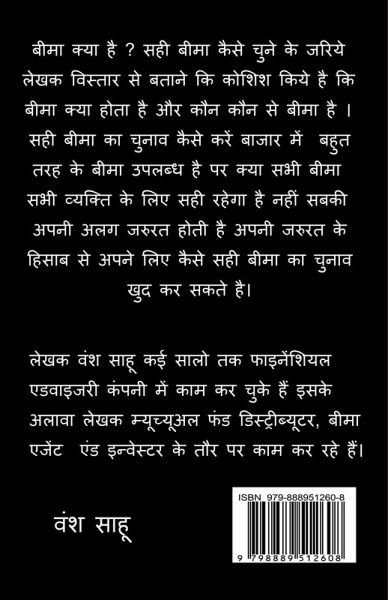 बीमा क्या है ? सही बीमा कैसे चुने के जरिये
लेखक विस्तार से बताने कि कोशिश किये है कि
बीमा क्या होता है और कौन कौन से बीमा है ।
सही बीमा का चुनाव कैसे करें बाजार में बहुत
तरह के बीमा उपलब्ध है पर क्या सभी बीमा
सभी व्यक्ति के लिए सही रहेगा है नहीं सबकी
अपनी अलग जरुरत होती है अपनी जरुरत के
हिसाब से अपने लिए कैसे सही बीमा का चुनाव
खुद कर सकते है।
लेखक वंश साहू कई सालो तक फाइनेंशियल
एडवाइजरी कंपनी में काम कर चुके हैं इसके
अलावा लेखक म्यूच्यूअल फंड डिस्ट्रीब्यूटर, बीमा
एजेंट एंड इन्वेस्टर के तौर पर काम कर रहे हैं।
ISBN 979-888951260-8
9 798889 512608
वंश साहू